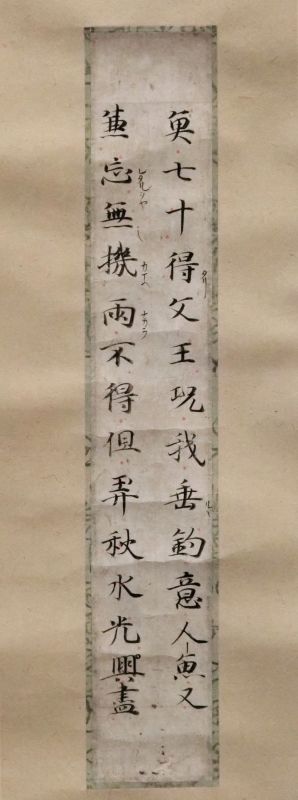 魚七十得文王况我垂釣意人魚又
兼忘無機兩不得但弄秋水光興盡